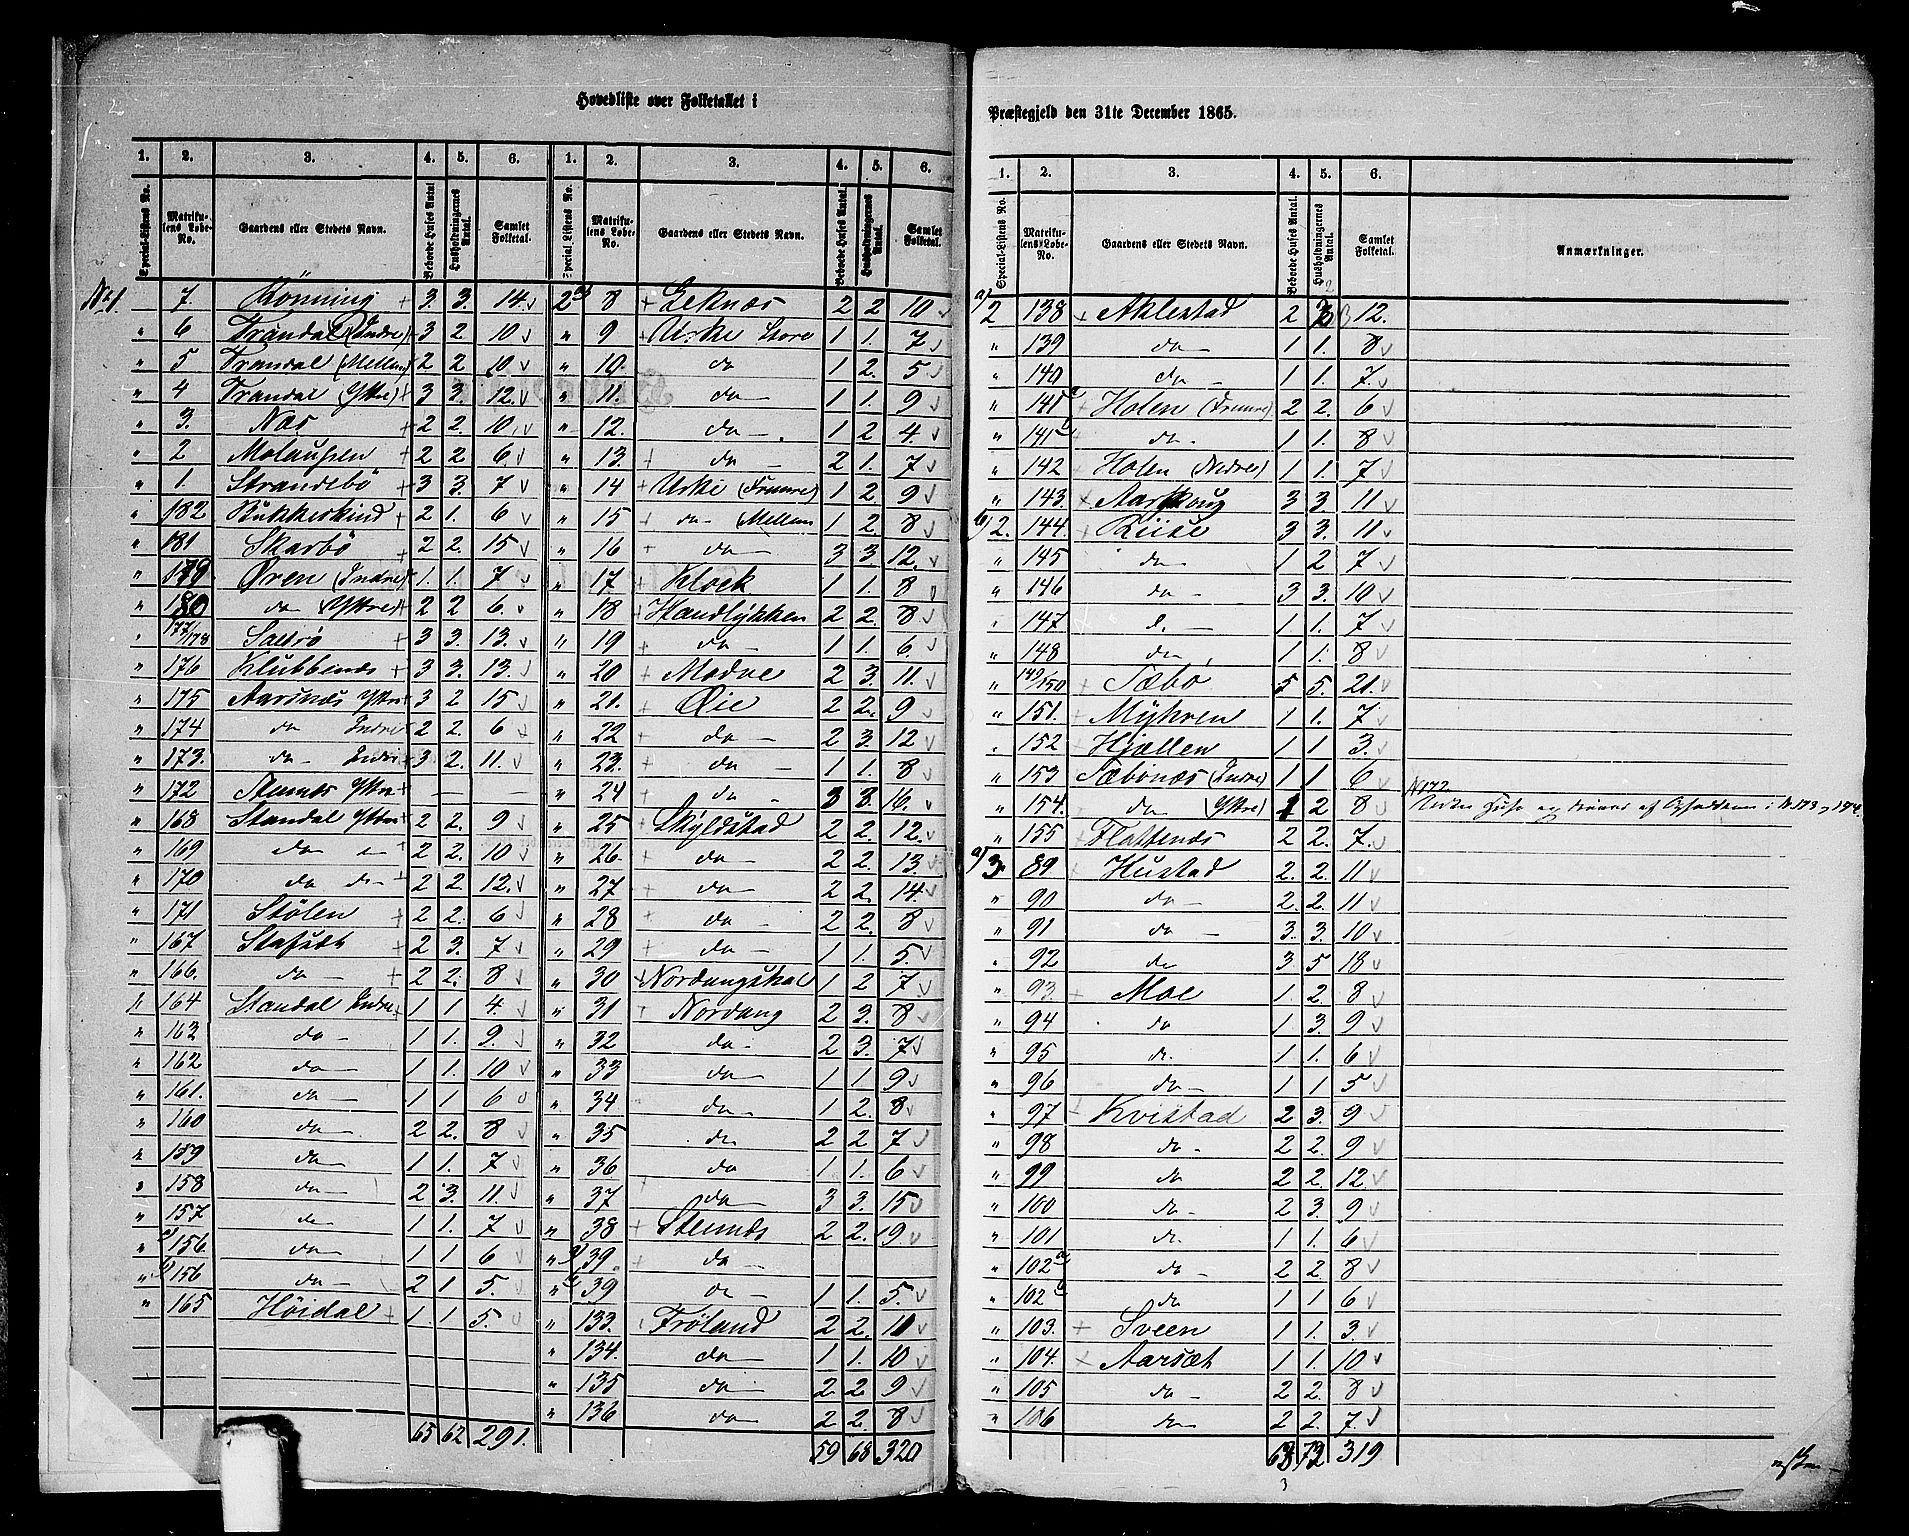 Hovedliste over Folketallet i
Præstegjeld den 31te December 1865.
1. 2. 3. 4. 5. 6. 1. 2. 3. 4. 5. 6.
Special-Listens No. Matrikulens Løbe-No. Gaardens eller Stedets Navn. Beboede Huses Antal. Husholdningernes Antal. Samlet Folketal. Special-Listens No. Matrikulens Løbe-No. Gaardens eller Stedets Navn. Beboede Huses Antal. Husholdningernes Antal. Samlet Folketal.
No 1. 7. Rönning 3. 3. 14.
" 6 Trandal (Indre) 3 2. 10
" 5 Trandal (Mellem) 2 2. 10
" 4 Trandal (Yttre) 3 3. 12.
" 3. Næs 2 2. 10
" 2 Molaupen 2 2. 6
" 1. Strandebö 3 3. 7
" 182 Bükkeskind 2 1. 6
" 181 Skarbö 2 2. 15
" 179 Øren (Indre) 1. 1. 7
" 180 do (Yttre) 2 2 6.
" 177/178 Sæbø 3 3. 13.
" 176 Klubbenæs 3 3. 13.
" 175 Aarsnæs Yttre 3 2. 15
" 174 do Indre 2 2. 6
" 173. do Indre 3. 2. 11.
" 172 Stennes Yttre — — —
" 168 Standal Yttre 2 2. 9
" 169 do 2 2. 10
" 170 do 2 2 12.
" 171 Stölen 2 2. 6
" 167 Stafsæth 2 3. 7
" 166. do 2 2. 8
" 164 Standal Indre 1 1 4.
" 163 do 1 1. 9.
" 162 do 1 1. 10
" 161. do 1 1 6
" 160 do 2 2. 8
" 159 do 1 1. 7
" 158 do 2 3. 11.
" 157 do 1 1. 7
" a) 156. do 1 1 6
" b) 156 do 2 1 5.
" 165 Höidal 1. 1 5.
65 62 291.
2 a) 8 Leknæs 2 2 10
" 9 Urke Store 1 1. 7
" 10. do 1 2. 5
" 11. do 1 1. 9
" 12. do 1 2 4.
" 13. do 2 1. 7
" 14 Urke (Fremre) 1 2. 9
" 15 do (Mellem 1 2. 8
" 16 do 3 3. 12.
" 17 Klock 1 1. 8
" 18 Handlykken 2 2. 8
" 19 do 1 1. 6.
" 20 Modve 2 3. 11.
" 21. Øie 2 2. 9
" 22 do 2 3. 12
" 23. do 1 1. 8
" 24 do 3 3. 16.
" 25 Skyldstad 2 2. 12.
" 26. do 2 2. 13.
" 27 do 2 2. 14.
" 28 do 2 2. 8
" 29 do 1 1. 5
" 30 Nordangskal 1 2 7.
" 31 Nordang 2 3. 8
" 32 do 2 3. 7
" 33 do 1 1. 9
" 34 do 1 2. 8
" 35 do 2 2 7
" 36 do 1 1. 6
" 37 do 3 3. 15
" 38 Stennæs 2 2. 19
" a) 39. do
" b) 39 do 1 1. 5.
" 133. Fröland 2 2. 11
" 134. do 1 1. 10
" 135 do 2 2. 9
" 136 do 2 2. 8
59 68 320
1. 2. 3. 4. 5. 6.
Special-Listens No. Matrikulens Løbe-No. Gaardens eller Stedets Navn. Beboede Huses Antal. Husholdningernes Antal. Samlet Folketal. Anmærkninger.
a) 2 138 Aklestad 2 3 12.
" 139 do 1 1. 8
" 140 do 1 1. 7.
" 141 a Holen (Fremre) 2 2. 6
" 141 b do. 1 1. 8
" 142 Holen (Nedre) 1 1. 7
" 143. Aarskoug 3 3. 11
b) 2. 144. Riise 3 3. 11
" 145 do 1 2 7
" 146 do 3 3. 10
" 147 do 1 1. 7
" 148 do 1 1. 8
" 149/150 Sæbö 5 5. 21.
" 151. Myhren 1 1. 7
" 152 Hjellen 1 1 3.
" 153 Sæbönæs (Indre) 1 1 6
No 172
" 154. do (Yttre) 1 2 8 Uden Huse og drives af Opsidderne i No 173 og 174.
" 155 Flattenæs 2 2. 7.
a) 3. 89 Hustad 2. 2. 11
" 90 do 2. 2. 11
" 91 do 3. 3. 10
" 92 do 3. 5 18
" 93. Moe 1. 2. 8
" 94 do 1 3. 9
" 95 do 1 1. 6
" 96 do 1 1 5
" 97 Kvistad 2 3. 9
" 98 do 2 2. 9
" 99 do 2 2. 12
" 100 do 2 3. 9
" 101 do 1 1. 6
" 102 a do 2 2 8
" 102 b do 1 1 6
" 103. Sveen 1 1. 3.
" 104. Aarsæt 1 1. 10
" 105 do 2 2. 8
" 106 do 2 2. 7
63 72 319
3